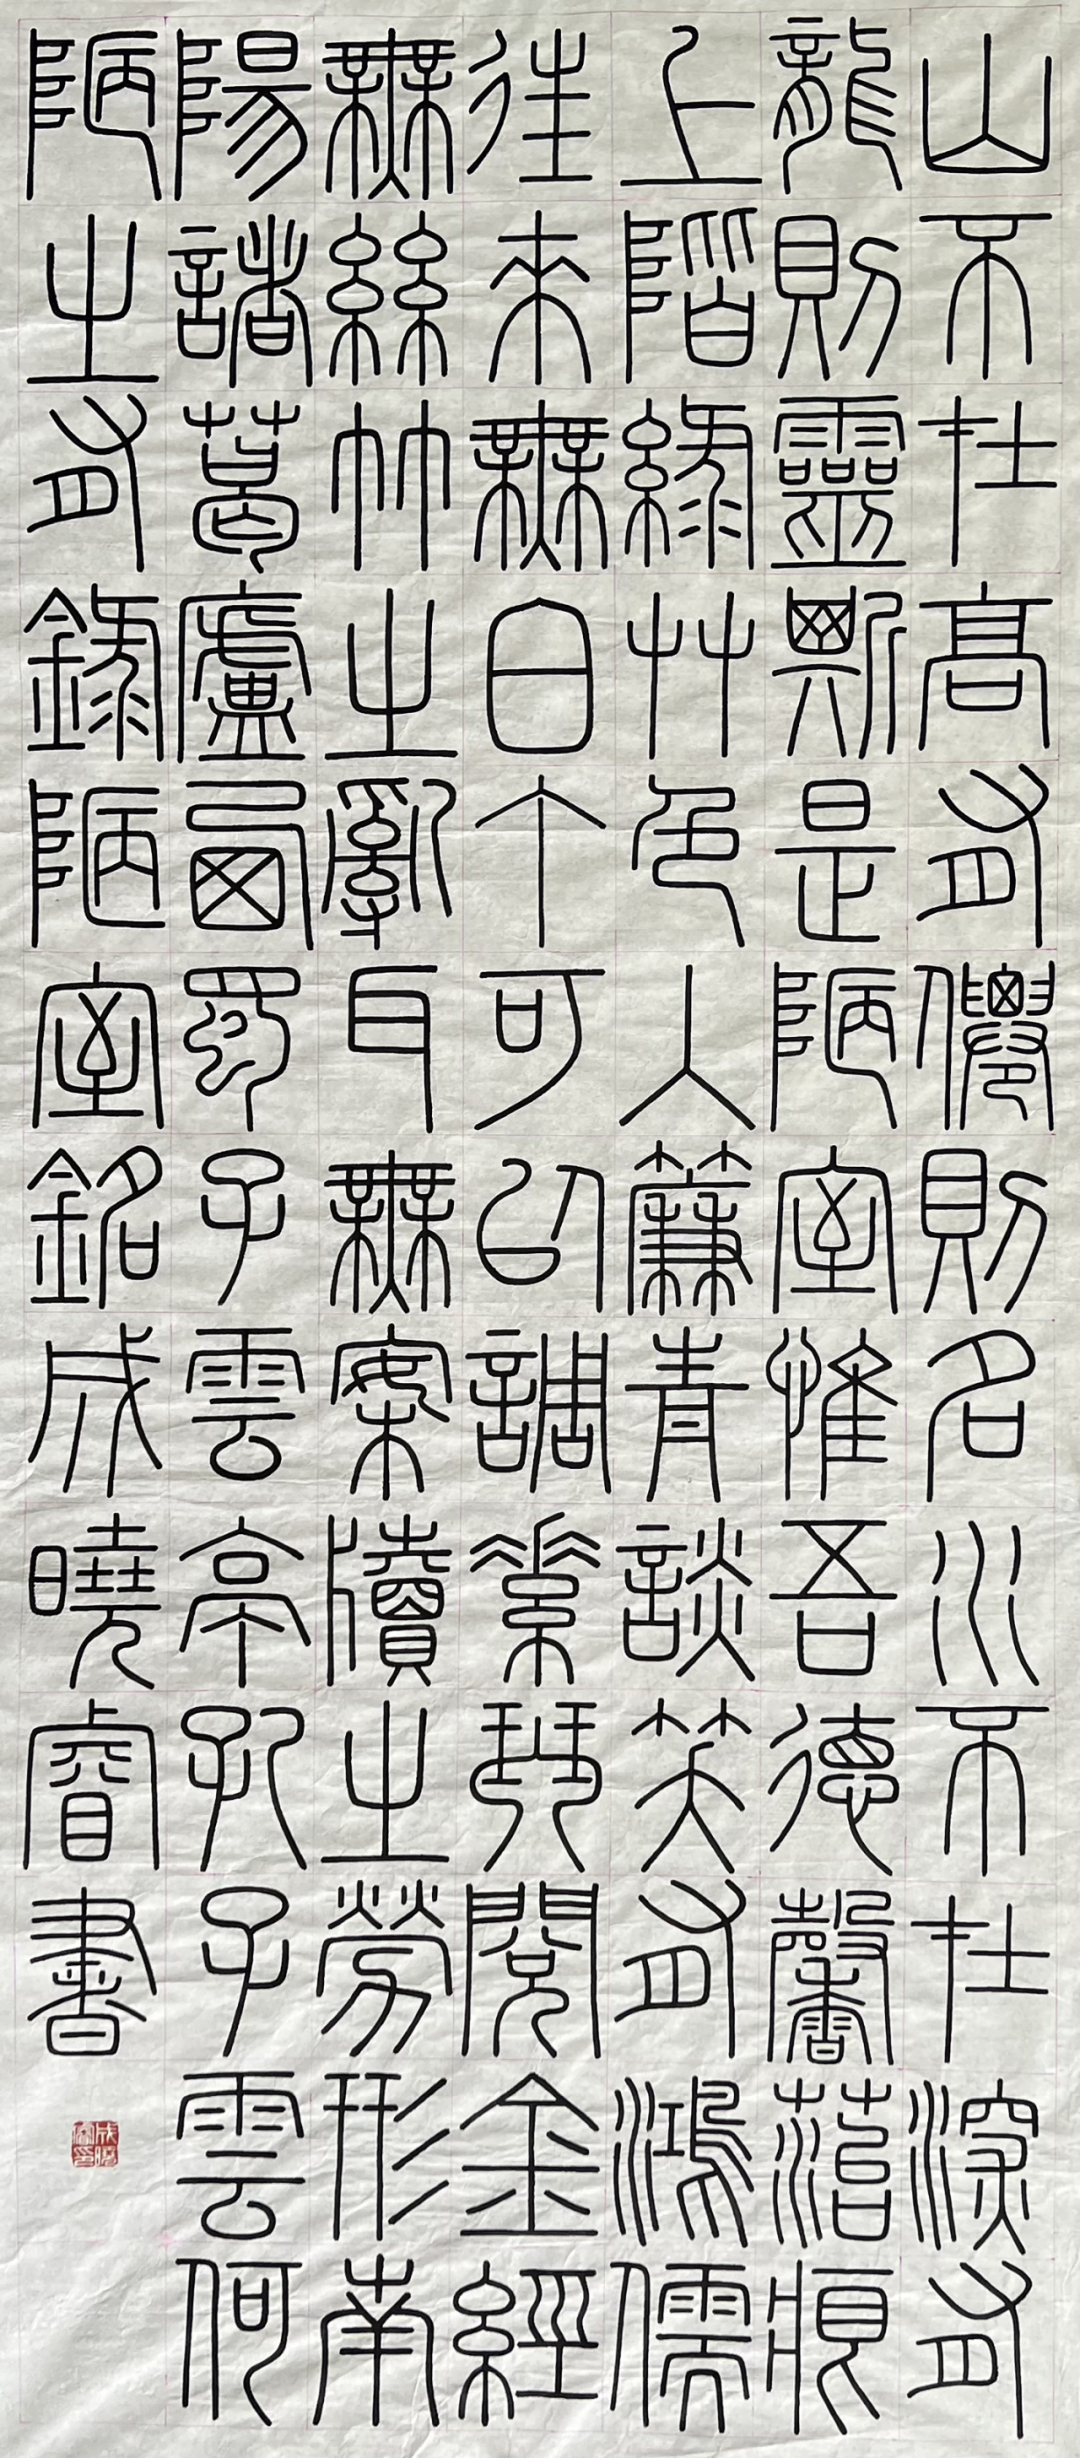 山不在高有僊則名水不在深有
龍則靈斯是陋室惟吾德馨菭痕
上階綠艸色入簾青談笑有鴻儒
往來無白丁可以調素琴閱金經
無絲竹之亂耳無案牘之勞形南
陽諸葛廬西蜀子雲亭孔子雲何
陋之有錄陋室銘成曉睿書
成曉睿印